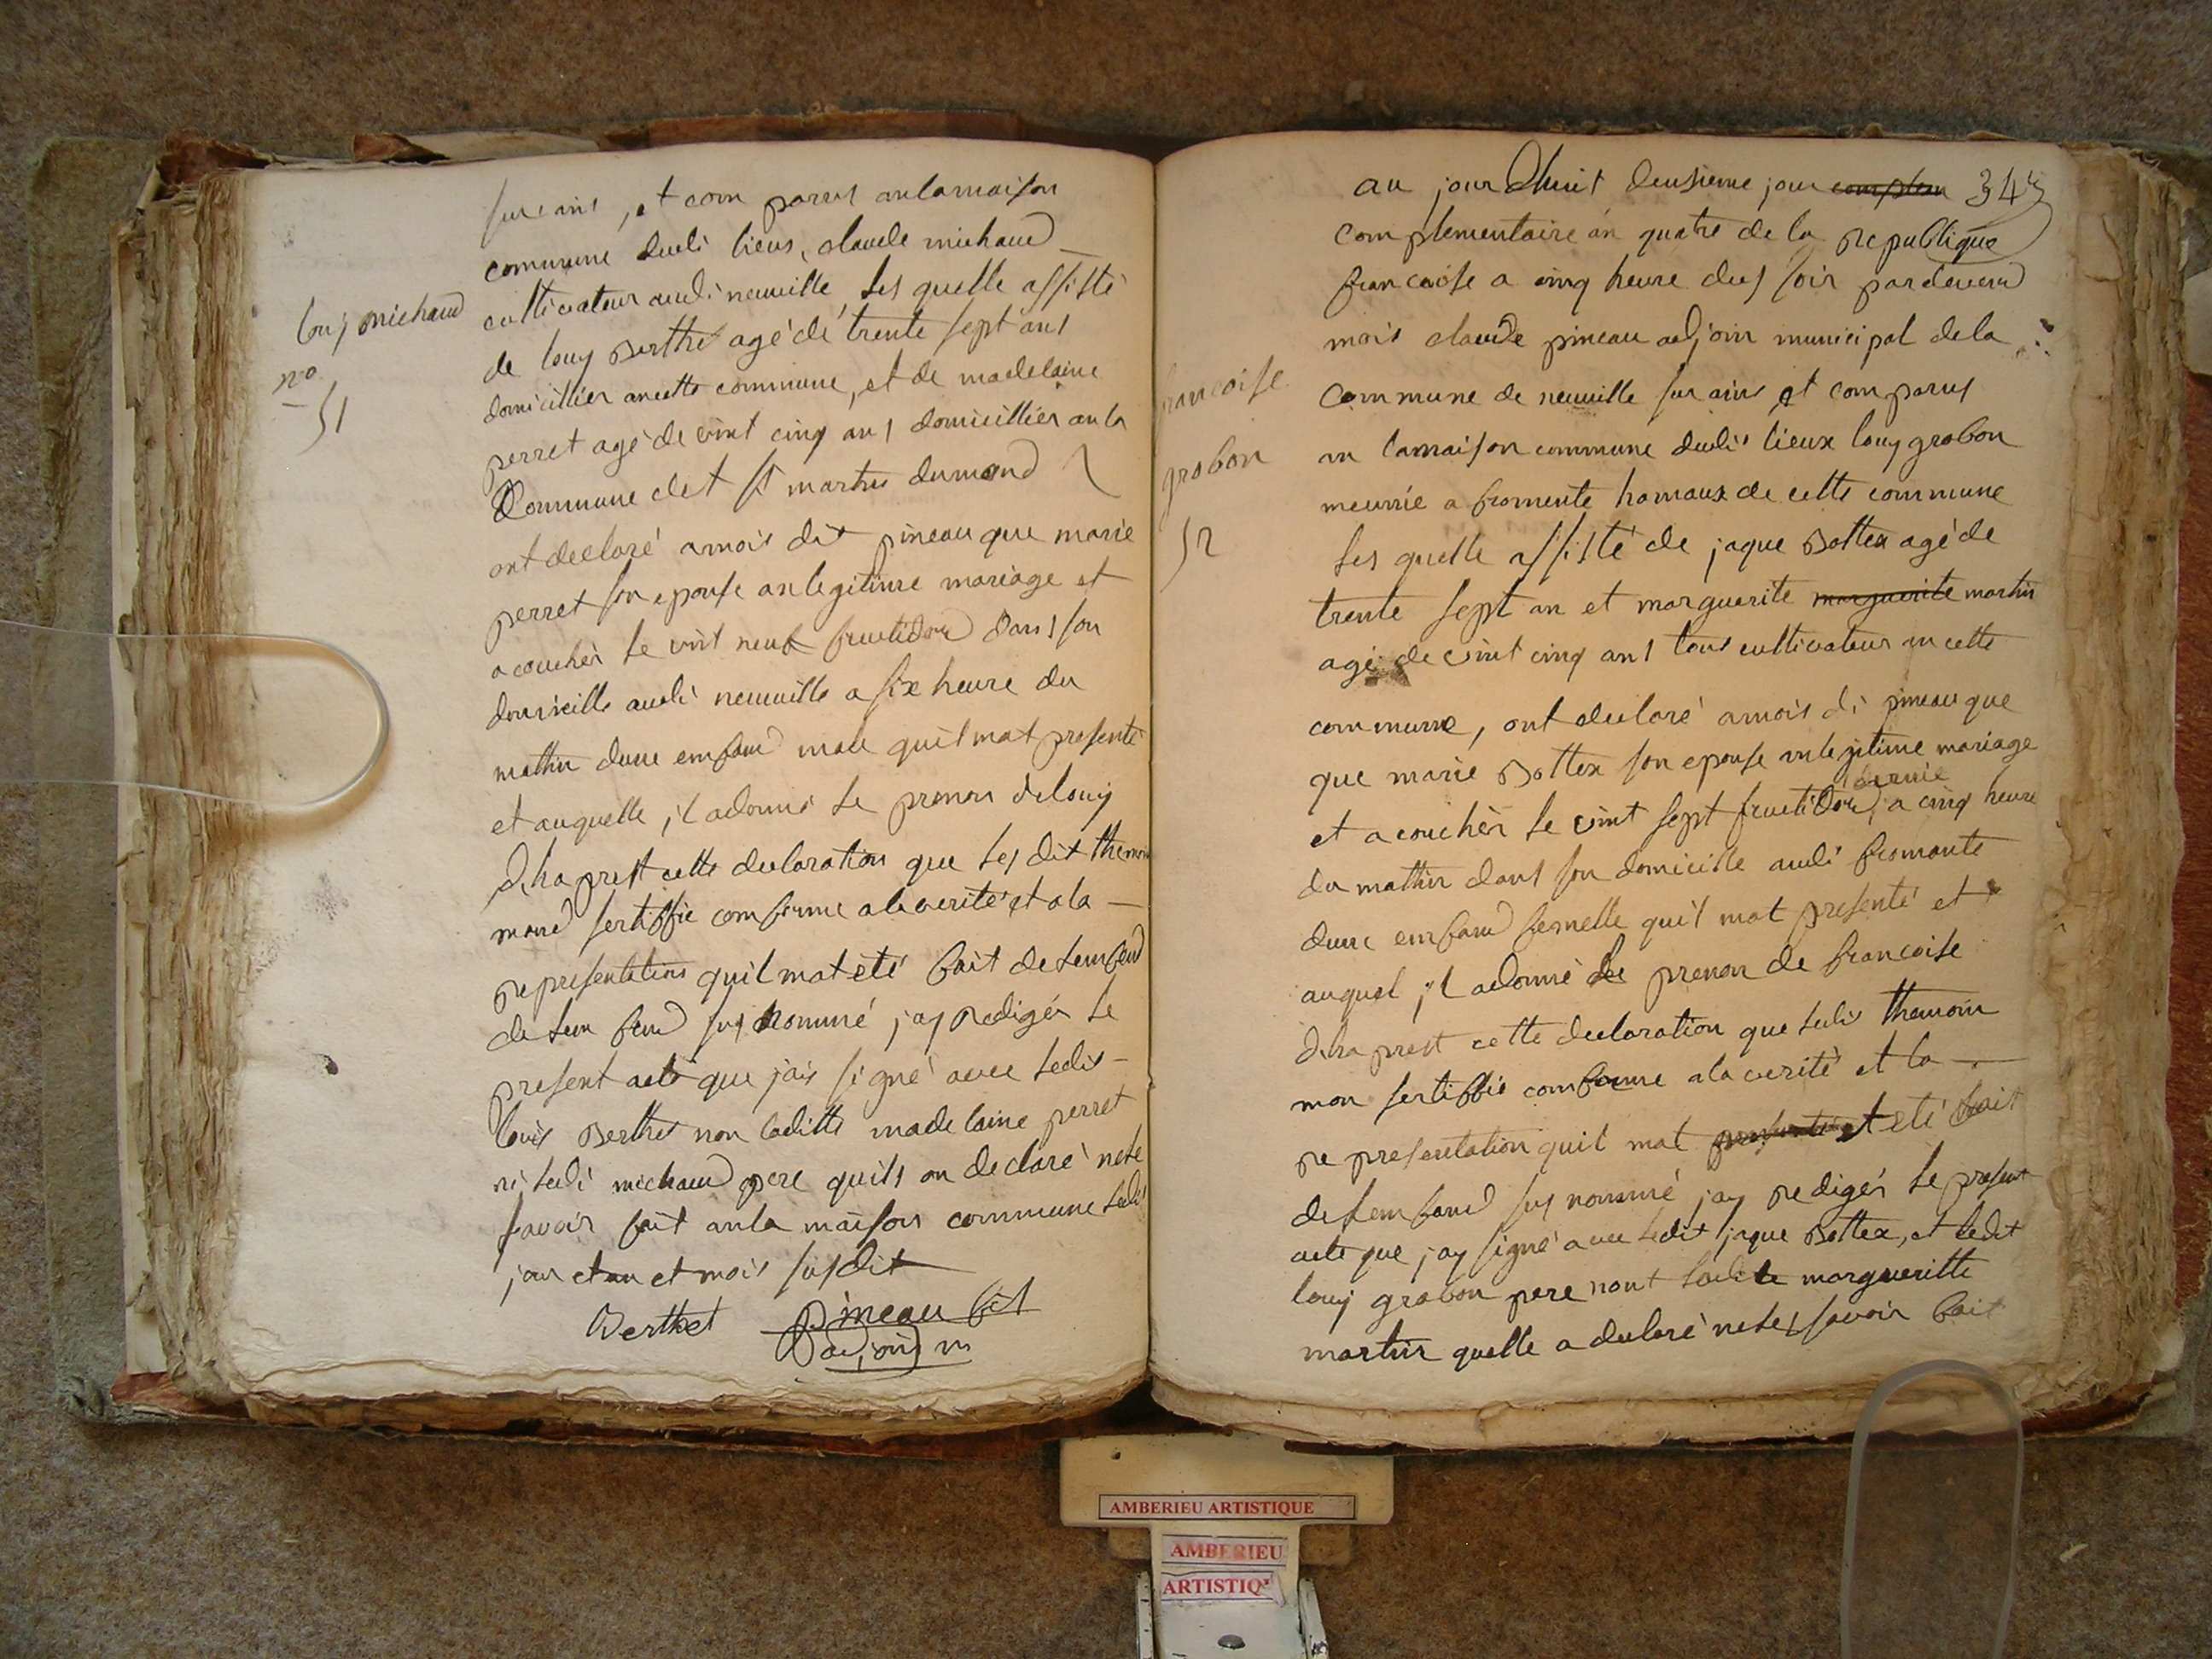 sur ains, et com parus an la maison
commune dudi lieus, claude michaud
cultivateur audi neuville, les quelle assisté
de louy Berthe agé dé trente sept ans
domicillier an cette commune, et de madelaine
perret agé de vint cinq ans domicillier an la
Commune det st martin dumond
ont declaré a mois dit pineau que marie
perret son epouse an legitime mariage et
acouchér le vint neuf fructidor dans son
domicille audi neuville a six heure du
mathin dune emfand male quil mat presenté
et auquelle il a donné le prenon de louy
Deha prest cette declaration que les dit themoin
mond sertiffie comforme a la verité et a la
representations quil mat eté fait de lemfand
de lem fand sus nommé jay redigér le
present acte que jais signé avec ledis
louis Berthet non laditte madelaine perret
ni ledi michaud pere quils on declaré nele
savoir fait an la maison commune ledis
jour et an et mois susdit
Berthet pineau fils
adjoin m
louj michaud
no
51
au jour Dhuit deusieme jour complem 343
complementaire án quatre de la Republique
francaise a cinq heure dus soir pardevend
mois claude pineau adjoin municipal de la
Commune de neuville sur ains et comparus
an la maison commune dudis lieux louy grobon
meunié a fromente hamaux de cette commune
Les quelle assisté de jaque Bottex agé de
trente sept an et marguerite marguerite martin
agé de vint cinq ans tous cultivateur an cette
commune, ont declaré a mois di pineau que
que marie Bottex son epouse an legitime mariage
dernie
et acouchér le vint sept fructidor, a cinq heure
du mathin dans son domicille audi fromante
dune emfand femelle quil mat presenté et
auquel il a donné le prenon de francoise
Deha prest cette declaration que ledis themoin
mon sertiffié comforme a la verité et la
representation quil mat presenté et eté fait
de lem fand sus nommé jay redigér le present
acte que jay signé avec ledit jaque Bottex, et ledit
louy grobon pere nont ladite margueritte
martin quelle a declaré neles savoir fait
francoise
grobon
52
AMBERIEU ARTISTIQUE
AMBERIEU
ARTISTIQ